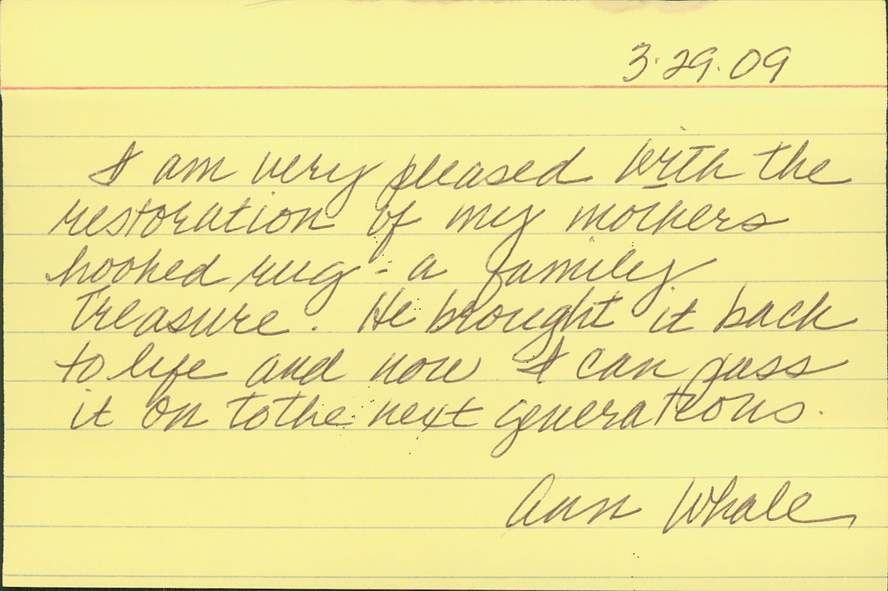 3·29·09
I am very pleased with the
restoration of my mothers
hooked rug - a family
treasure. He brought it back
to life and now I can pass
it on to the next generations.
Ann Whale